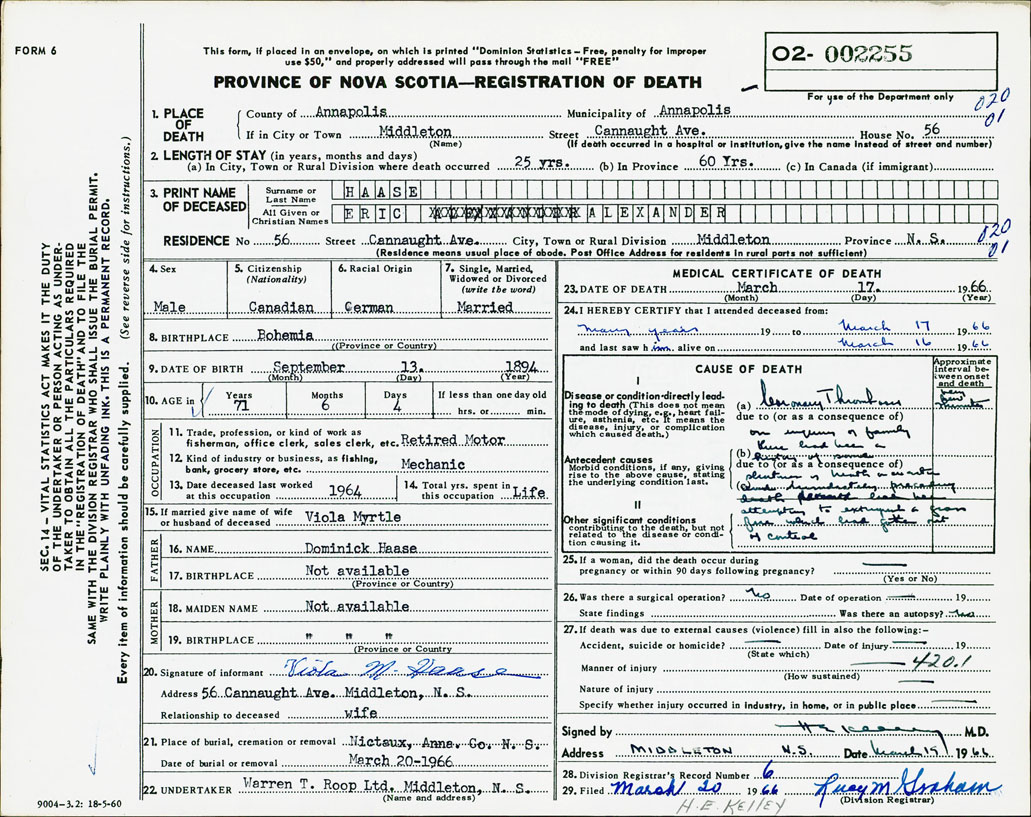 FORM 6
This form, if placed in an envelope, on which is printed "Dominion Statistics – Free, penalty for improper
use $50," and properly addressed will pass through the mail "FREE"
PROVINCE OF NOVA SCOTIA—REGISTRATION OF DEATH
02- 002255
For use of the Department only
020
01
1. PLACE OF DEATH
County of Annapolis Municipality of Annapolis
If in City or Town Middleton Street Cannaught Ave. House No. 56
(Name) (If death occurred in a hospital or institution, give the name instead of street and number)
2. LENGTH OF STAY (in years, months and days)
(a) In City, Town or Rural Division where death occurred 25 yrs. (b) In Province 60 Yrs. (c) In Canada (if immigrant)
3. PRINT NAME OF DECEASED
Surname or Last Name HAASE
All Given or Christian Names ERIC ALEXANDER
RESIDENCE No 56 Street Cannaught Ave. City, Town or Rural Division Middleton Province N. S.
(Residence means usual place of abode. Post Office Address for residents in rural parts not sufficient)
020
01
4. Sex
Male
5. Citizenship
(Nationality)
Canadian
6. Racial Origin
German
7. Single, Married,
Widowed or Divorced
(write the word)
Married
8. BIRTHPLACE Bohemia
((Province or Country)
9. DATE OF BIRTH September 13. 1894
(Month) (Day) (Year)
10. AGE in Years Months Days If less than one day old
71 6 4 hrs. or min.
OCCUPATION
11. Trade, profession, or kind of work as
fisherman, office clerk, sales clerk, etc. Retired Motor
12. Kind of industry or business, as fishing,
bank, grocery store, etc. Mechanic
13. Date deceased last worked
at this occupation 1964
14. Total yrs. spent in
this occupation Life
15. If married give name of wife
or husband of deceased Viola Myrtle
FATHER
16. NAME Dominick Haase
17. BIRTHPLACE Not available
(Province or Country)
MOTHER
18. MAIDEN NAME Not available
19. BIRTHPLACE " " "
(Province or Country)
20. Signature of informant Viola M. Haase
Address 56 Cannaught Ave. Middleton, N. S.
Relationship to deceased wife
21. Place of burial, cremation or removal Nictaux, Anna. Co. N. S.
Date of burial or removal March 20-1966
22. UNDERTAKER Warren T. Roop Ltd. Middleton, N. S.
(Name and address)
MEDICAL CERTIFICATE OF DEATH
23. DATE OF DEATH March 17. 1966
(Month) (Day) (Year)
24. I HEREBY CERTIFY that I attended deceased from:
many years 19 to March 17 1966
and last saw him alive on March 16 1966
CAUSE OF DEATH
Approximate interval between onset and death
I
Disease or condition directly leading to death (This does not mean the mode of dying, e.g., heart failure, asthenia, etc. It means the disease, injury, or complication which caused death.)
(a) Coronary Thrombosis
very few minutes
due to (or as a consequence of)
on enquiry of family
there had been a
Antecedent causes
Morbid conditions, if any, giving rise to the above cause, stating the underlying condition last.
(b) history of some
due to (or as a consequence of)
(c) immediately preceding
II
death had been
attempting to extinguish a grass
fire which had gotten out
of control
Other significant conditions
contributing to the death, but not related to the disease or condition causing it.
25. If a woman, did the death occur during
pregnancy or within 90 days following pregnancy?
(Yes or No)
26. Was there a surgical operation? No Date of operation 19
State findings Was there an autopsy? No
27. If death was due to external causes (violence) fill in also the following:–
Accident, suicide or homicide? Date of injury 19
(State which)
Manner of injury 420.1
(How sustained)
Nature of injury
Specify whether injury occurred in industry, in home, or in public place
Signed by M.D.
Address MIDDLETON N.S. Date March 19 1966
28. Division Registrar's Record Number 6
29. Filed March 20 1966 Lucy M Graham
(Division Registrar)
H. E. Kelley
SEC. 14 – VITAL STATISTICS ACT MAKES IT THE DUTY
OF THE UNDERTAKER OR PERSON ACTING AS UNDER-
TAKER TO OBTAIN ALL THE PARTICULARS REQUIRED
IN THE "REGISTRATION OF DEATH" AND TO FILE THE
SAME WITH THE DIVISION REGISTRAR WHO SHALL ISSUE THE BURIAL PERMIT.
WRITE PLAINLY WITH UNFADING INK. THIS IS A PERMANENT RECORD.
Every item of information should be carefully supplied. (See reverse side for instructions.)
9004–3.2: 18-5-60